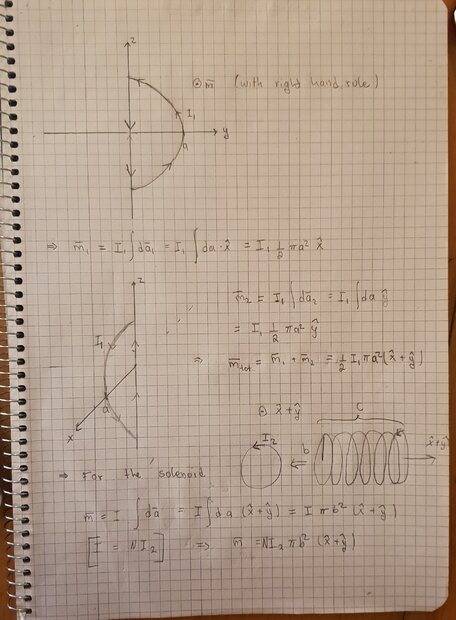 z
⊙ m̄ (with right hand rule)
I₁
y
a
⇒ m̄₁ = I₁ ∫ dā₁ = I₁ ∫ da · x̂ = I₁ ½ πa² x̂
z
m̄₂ = I₁ ∫ dā₂ = I₁ ∫ da ŷ
I₁
= I₁ ½ πa² ŷ
⇒ m̄tot = m̄₁ + m̄₂ = ½ I₁ πa² (x̂+ŷ)
a
x
⊙ x̂+ŷ
c
I₂
b
x̂+ŷ
⇒ For the solenoid
m̄ = I ∫ dā = I ∫ da (x̂+ŷ) = I πb² (x̂+ŷ)
[I = NI₂] ⇒ m̄ = NI₂ πb² (x̂+ŷ)